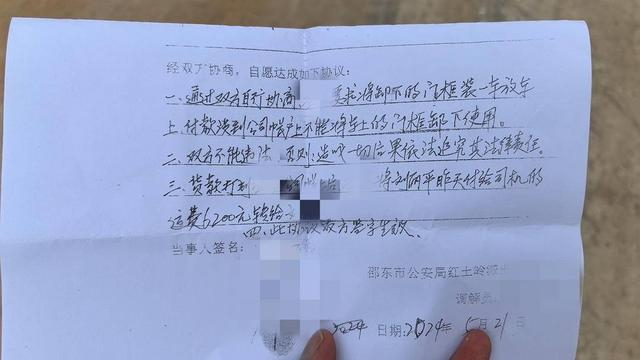 经双方协商，自愿达成如下协议：
一、通过双方自行协商 要求将卸下的门框装一车放车
上付款没到公司帐户上不能将车上的门框卸下使用。
二、双方不能违法，否则造成一切后果依法追究其法律责任。
三、货款打到 将刘 平昨天付给司机的
运费6200元转给
四、此协议双方签字生效
当事人签名：
邵东市公安局红土岭派出
调解员
2024 日期：2024年5月21日